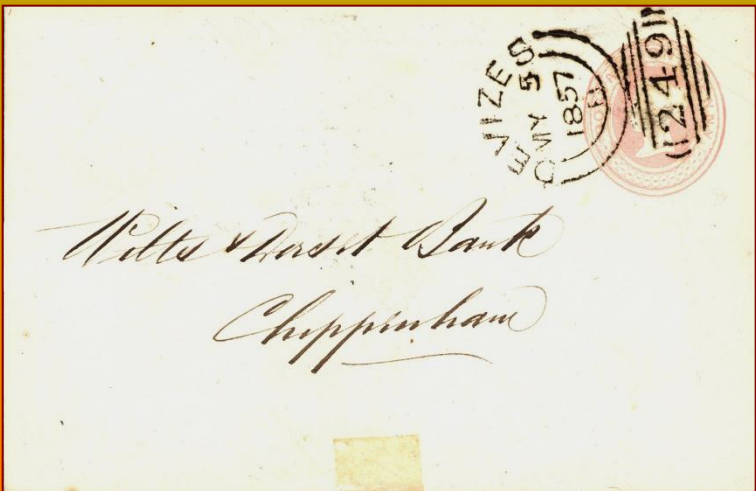 DEVIZES
MY 5
1857
B
249
Wilts & Dorset Bank
Chippenham